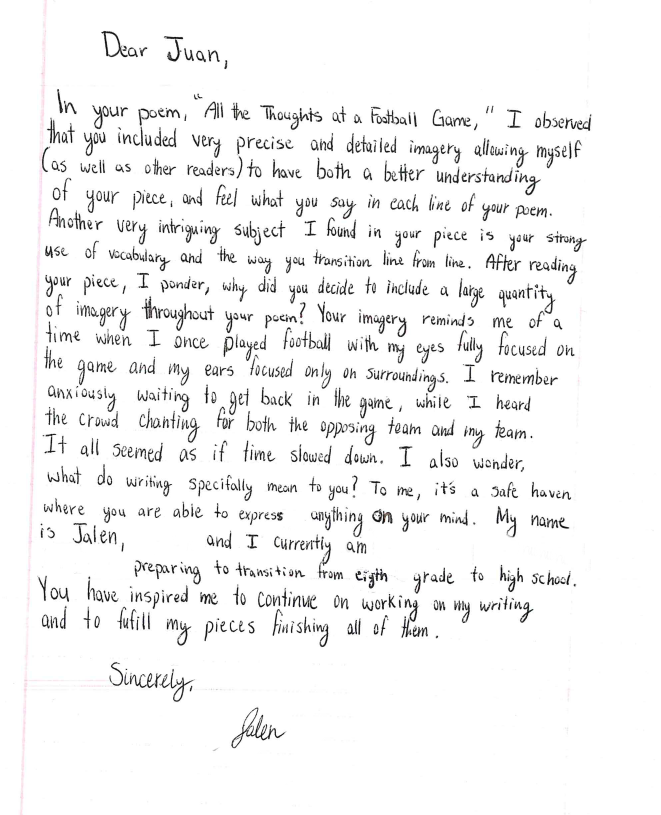 Dear Juan,
In your poem, "All the Thoughts at a Football Game," I observed
that you included very precise and detailed imagery allowing myself
(as well as other readers) to have both a better understanding
of your piece, and feel what you say in each line of your poem.
Another very intriguing subject I found in your piece is your strong
use of vocabulary and the way you transition line from line. After reading
your piece, I ponder, why did you decide to include a large quantity
of imagery throughout your poem? Your imagery reminds me of a
time when I once played football with my eyes fully focused on
the game and my ears focused only on surroundings. I remember
anxiously waiting to get back in the game, while I heard
the crowd chanting for both the opposing team and my team.
It all seemed as if time slowed down. I also wonder,
what do writing specifally mean to you? To me, it's a safe haven
where you are able to express anything on your mind. My name
is Jalen, and I currently am
preparing to transition from eigth grade to high school.
You have inspired me to continue on working on my writing
and to fufill my pieces finishing all of them.
Sincerely,
Jalen